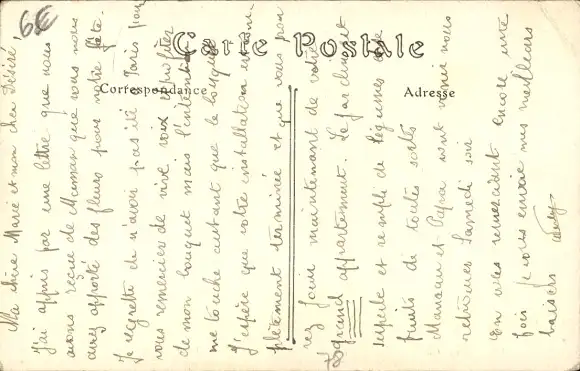 6€
Carte Postale
Correspondance
Adresse
Ma chère Marie et mon cher Désiré,
J'ai appris par une lettre que nous
avons reçue de Maman que vous nous
aviez apporté des fleurs pour notre fête.
Je regrette de n'avoir pas été à Paris pour
vous remercier de vive voix
de mon bouquet mais l'intention
me touche autant que le bouquet
J'espère que votre installation est com
plètement terminée et que vous pou
rez jouir maintenant de votre
grand appartement. Le jardin est
superbe et rempli de légumes et de
fruits de toutes sortes
Maman et Papa vont venir nous
retrouver Samedi soir
En vous remerciant encore une
fois je vous envoie mes meilleurs
baisers